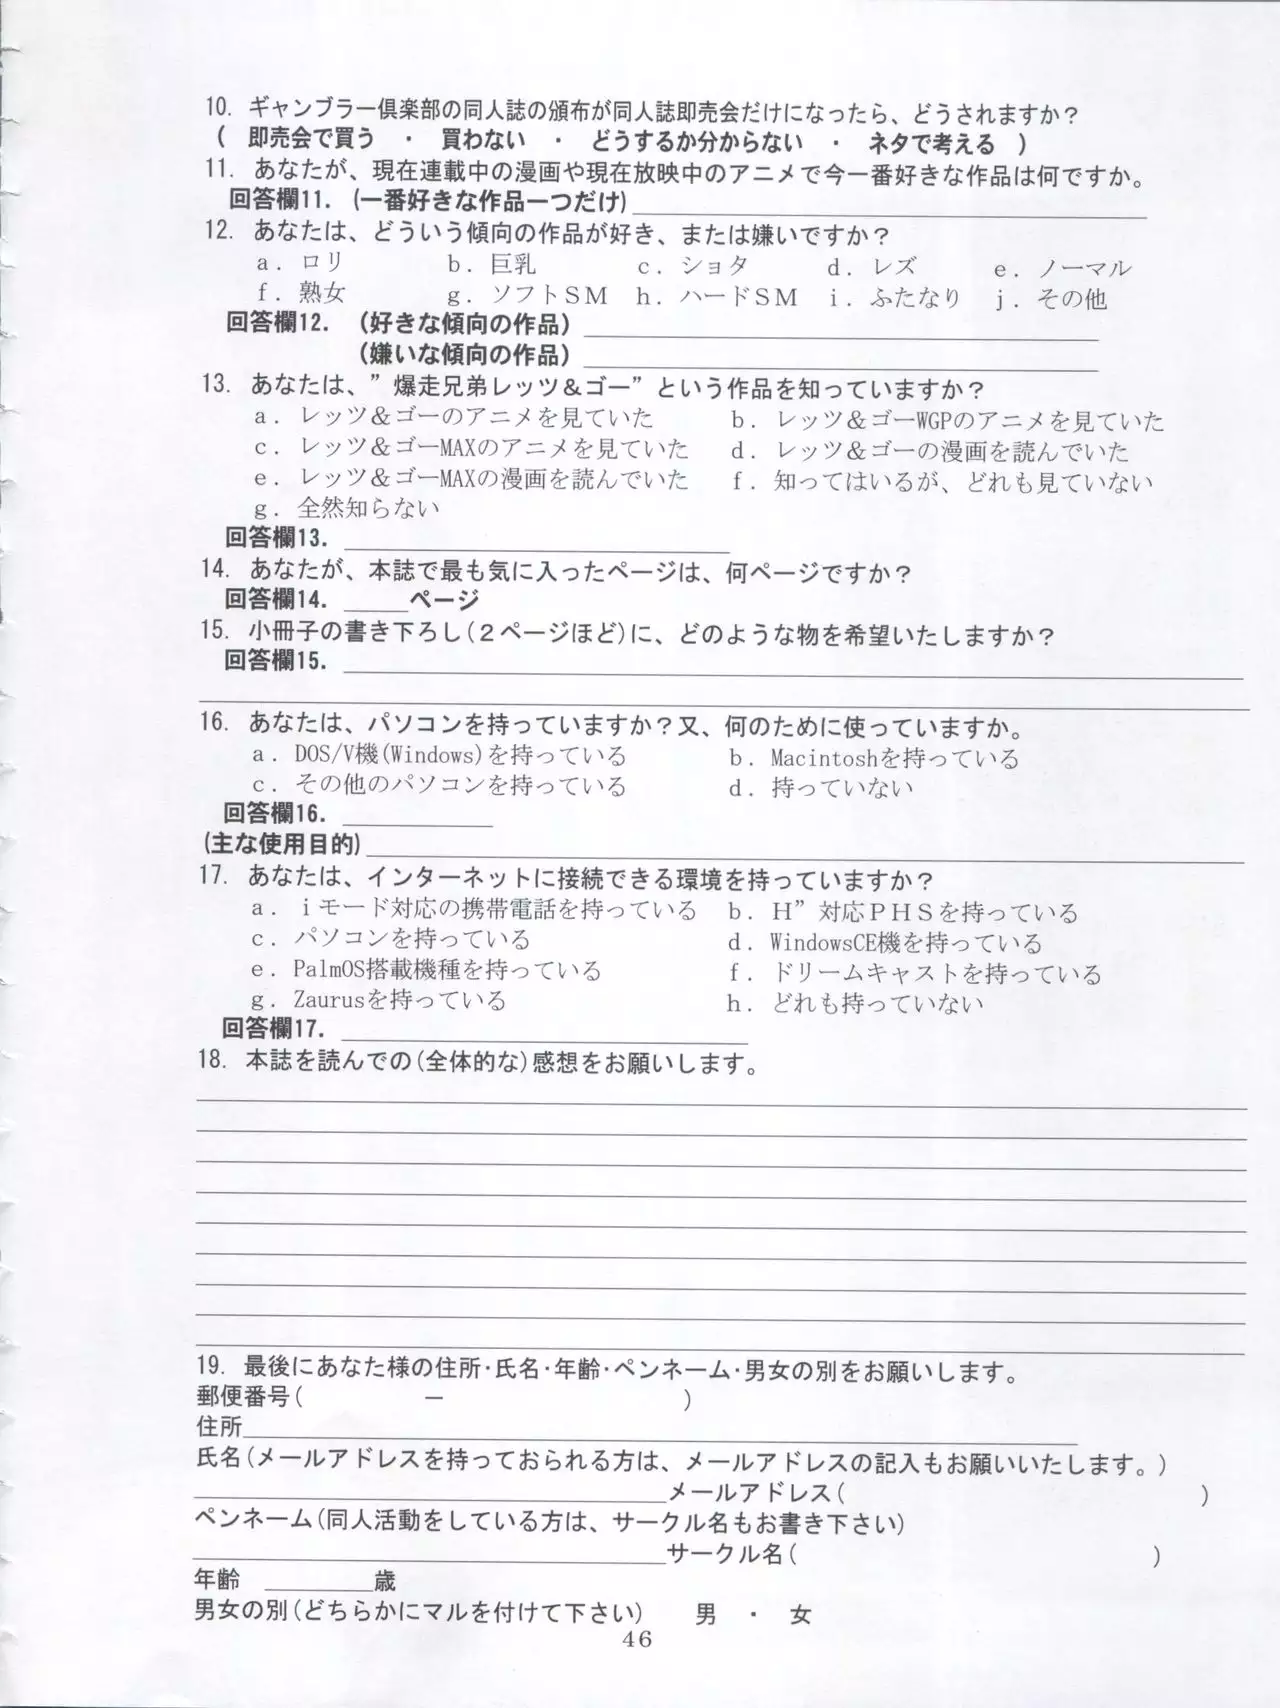 10. ギャンブラー倶楽部の同人誌の頒布が同人誌即売会だけになったら、どうされますか？
( 即売会で買う ・ 買わない ・ どうするか分からない ・ ネタで考える )
11. あなたが、現在連載中の漫画や現在放映中のアニメで今一番好きな作品は何ですか。
回答欄11. (一番好きな作品一つだけ)
12. あなたは、どういう傾向の作品が好き、または嫌いですか？
ａ．ロリ ｂ．巨乳 ｃ．ショタ ｄ．レズ ｅ．ノーマル
ｆ．熟女 ｇ．ソフトＳＭ ｈ．ハードＳＭ ｉ．ふたなり ｊ．その他
回答欄12. (好きな傾向の作品)
(嫌いな傾向の作品)
13. あなたは、”爆走兄弟レッツ＆ゴー”という作品を知っていますか？
ａ．レッツ＆ゴーのアニメを見ていた ｂ．レッツ＆ゴーWGPのアニメを見ていた
ｃ．レッツ＆ゴーMAXのアニメを見ていた ｄ．レッツ＆ゴーの漫画を読んでいた
ｅ．レッツ＆ゴーMAXの漫画を読んでいた ｆ．知ってはいるが、どれも見ていない
ｇ．全然知らない
回答欄13.
14. あなたが、本誌で最も気に入ったページは、何ページですか？
回答欄14. ページ
15. 小冊子の書き下ろし(２ページほど)に、どのような物を希望いたしますか？
回答欄15.
16. あなたは、パソコンを持っていますか？又、何のために使っていますか。
ａ．DOS/V機(Windows)を持っている ｂ．Macintoshを持っている
ｃ．その他のパソコンを持っている ｄ．持っていない
回答欄16.
(主な使用目的)
17. あなたは、インターネットに接続できる環境を持っていますか？
ａ．ｉモード対応の携帯電話を持っている ｂ．Ｈ”対応ＰＨＳを持っている
ｃ．パソコンを持っている ｄ．WindowsCE機を持っている
ｅ．PalmOS搭載機種を持っている ｆ．ドリームキャストを持っている
ｇ．Zaurusを持っている ｈ．どれも持っていない
回答欄17.
18. 本誌を読んでの(全体的な)感想をお願いします。
19. 最後にあなた様の住所・氏名・年齢・ペンネーム・男女の別をお願いします。
郵便番号( － )
住所
氏名(メールアドレスを持っておられる方は、メールアドレスの記入もお願いいたします。)
メールアドレス( )
ペンネーム(同人活動をしている方は、サークル名もお書き下さい)
サークル名( )
年齢 歳
男女の別(どちらかにマルを付けて下さい) 男 ・ 女
46